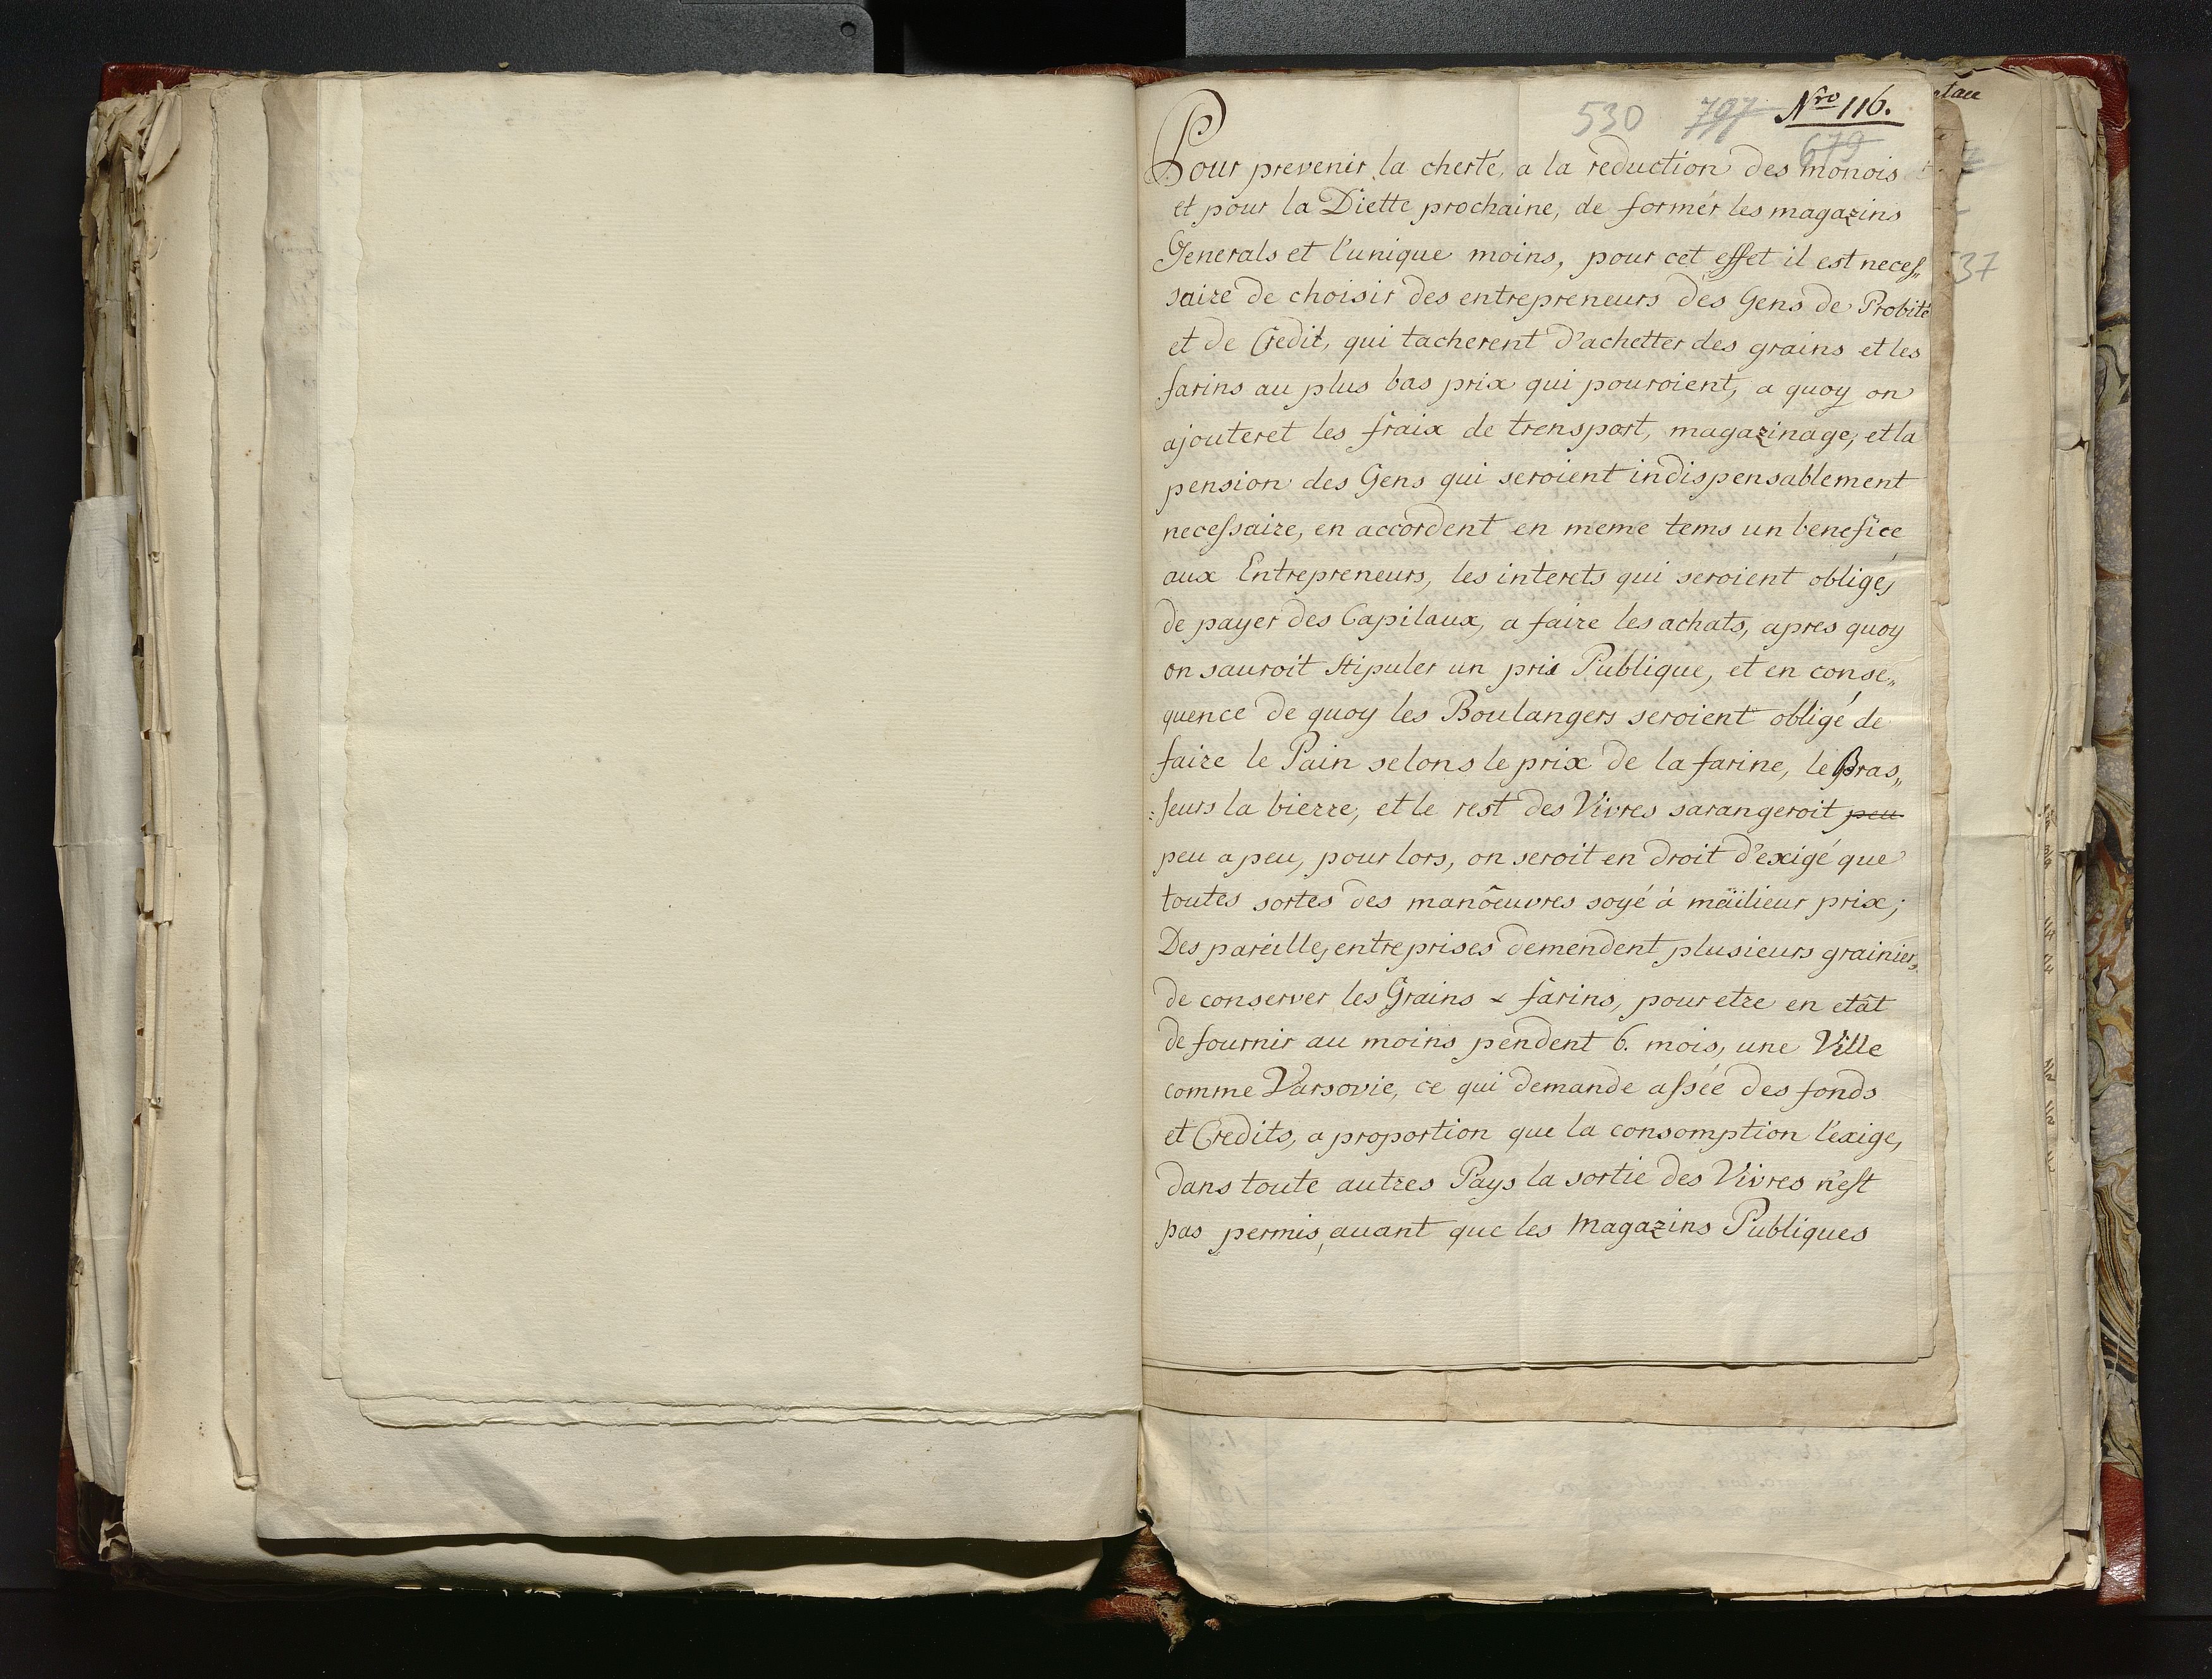 530 797 Nro 116.
679
Pour prevenir la cherté, a la reduction des monois
et pour la Diette prochaine, de formér les magazins
Generals et l'unique moins, pour cet effet il est neces„
saire de choisir des entrepreneurs des Gens de Probité
et de Credit, qui tacherent d'achetter des grains et les
farins au plus bas prix qui pouroient, a quoy on
ajouteret les fraix de trensport, magazinage, et la
pension des Gens qui seroient indispensablement
necessaire, en accordent en meme tems un benefice
aux Entrepreneurs, les interets qui seroient obligés
de payer des Capitaux, a faire les achats, apres quoy
on sauroit stipuler un pris Publique, et en conse„
quence de quoy les Boulangers seroient obligé de
faire le Pain selons le prix de la farine, le Bras„
:seurs la bierre, et le rest des Vivres sarangeroit peu
peu a peu, pour lors, on seroit en droit d'exigé que
toutes sortes des manôeuvres soyé à mäilieur prix;
Des pareilles entreprises demendent plusieurs grainiers
de conserver les Grains & farins, pour etre en etât
de fournir au moins pendent 6. mois, une Ville
comme Varsovie, ce qui demande assée des fonds
et Credits, a proportion que la consomption l'exige,
dans toute autres Pays la sortie des Vivres n'est
pas permis, avant que les magazins Publiques
37